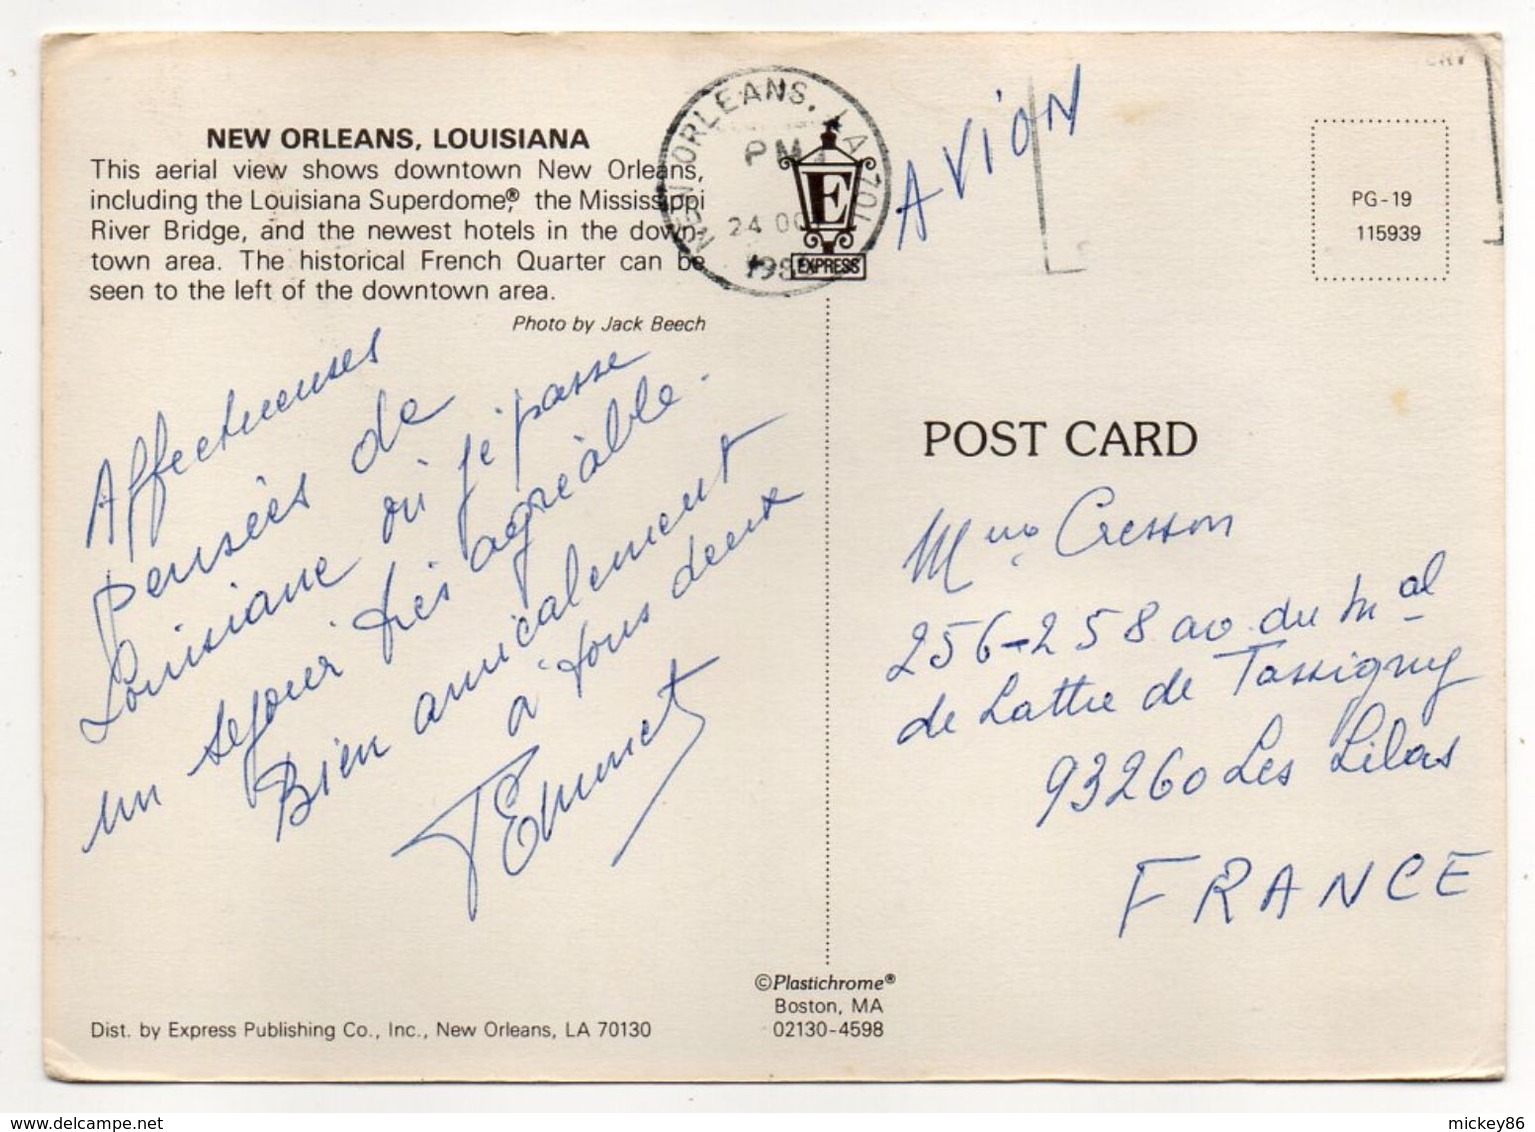 NEW ORLEANS, LOUISIANA
This aerial view shows downtown New Orleans,
including the Louisiana Superdome,® the Mississippi
River Bridge, and the newest hotels in the down-
town area. The historical French Quarter can be
seen to the left of the downtown area.
Photo by Jack Beech
NEW ORLEANS, LA 701
PM
24 OC
198
E
EXPRESS
AVION
PG-19
115939
Affectueuses
pensées de
Louisiane où je passe
un séjour très agréable.
Bien amicalement
à tous deux
POST CARD
Cresson
256-258 av. du Mal
de Lattre de Tassigny
93260 Les Lilas
FRANCE
©Plastichrome®
Boston, MA
02130-4598
Dist. by Express Publishing Co., Inc., New Orleans, LA 70130
mickey86